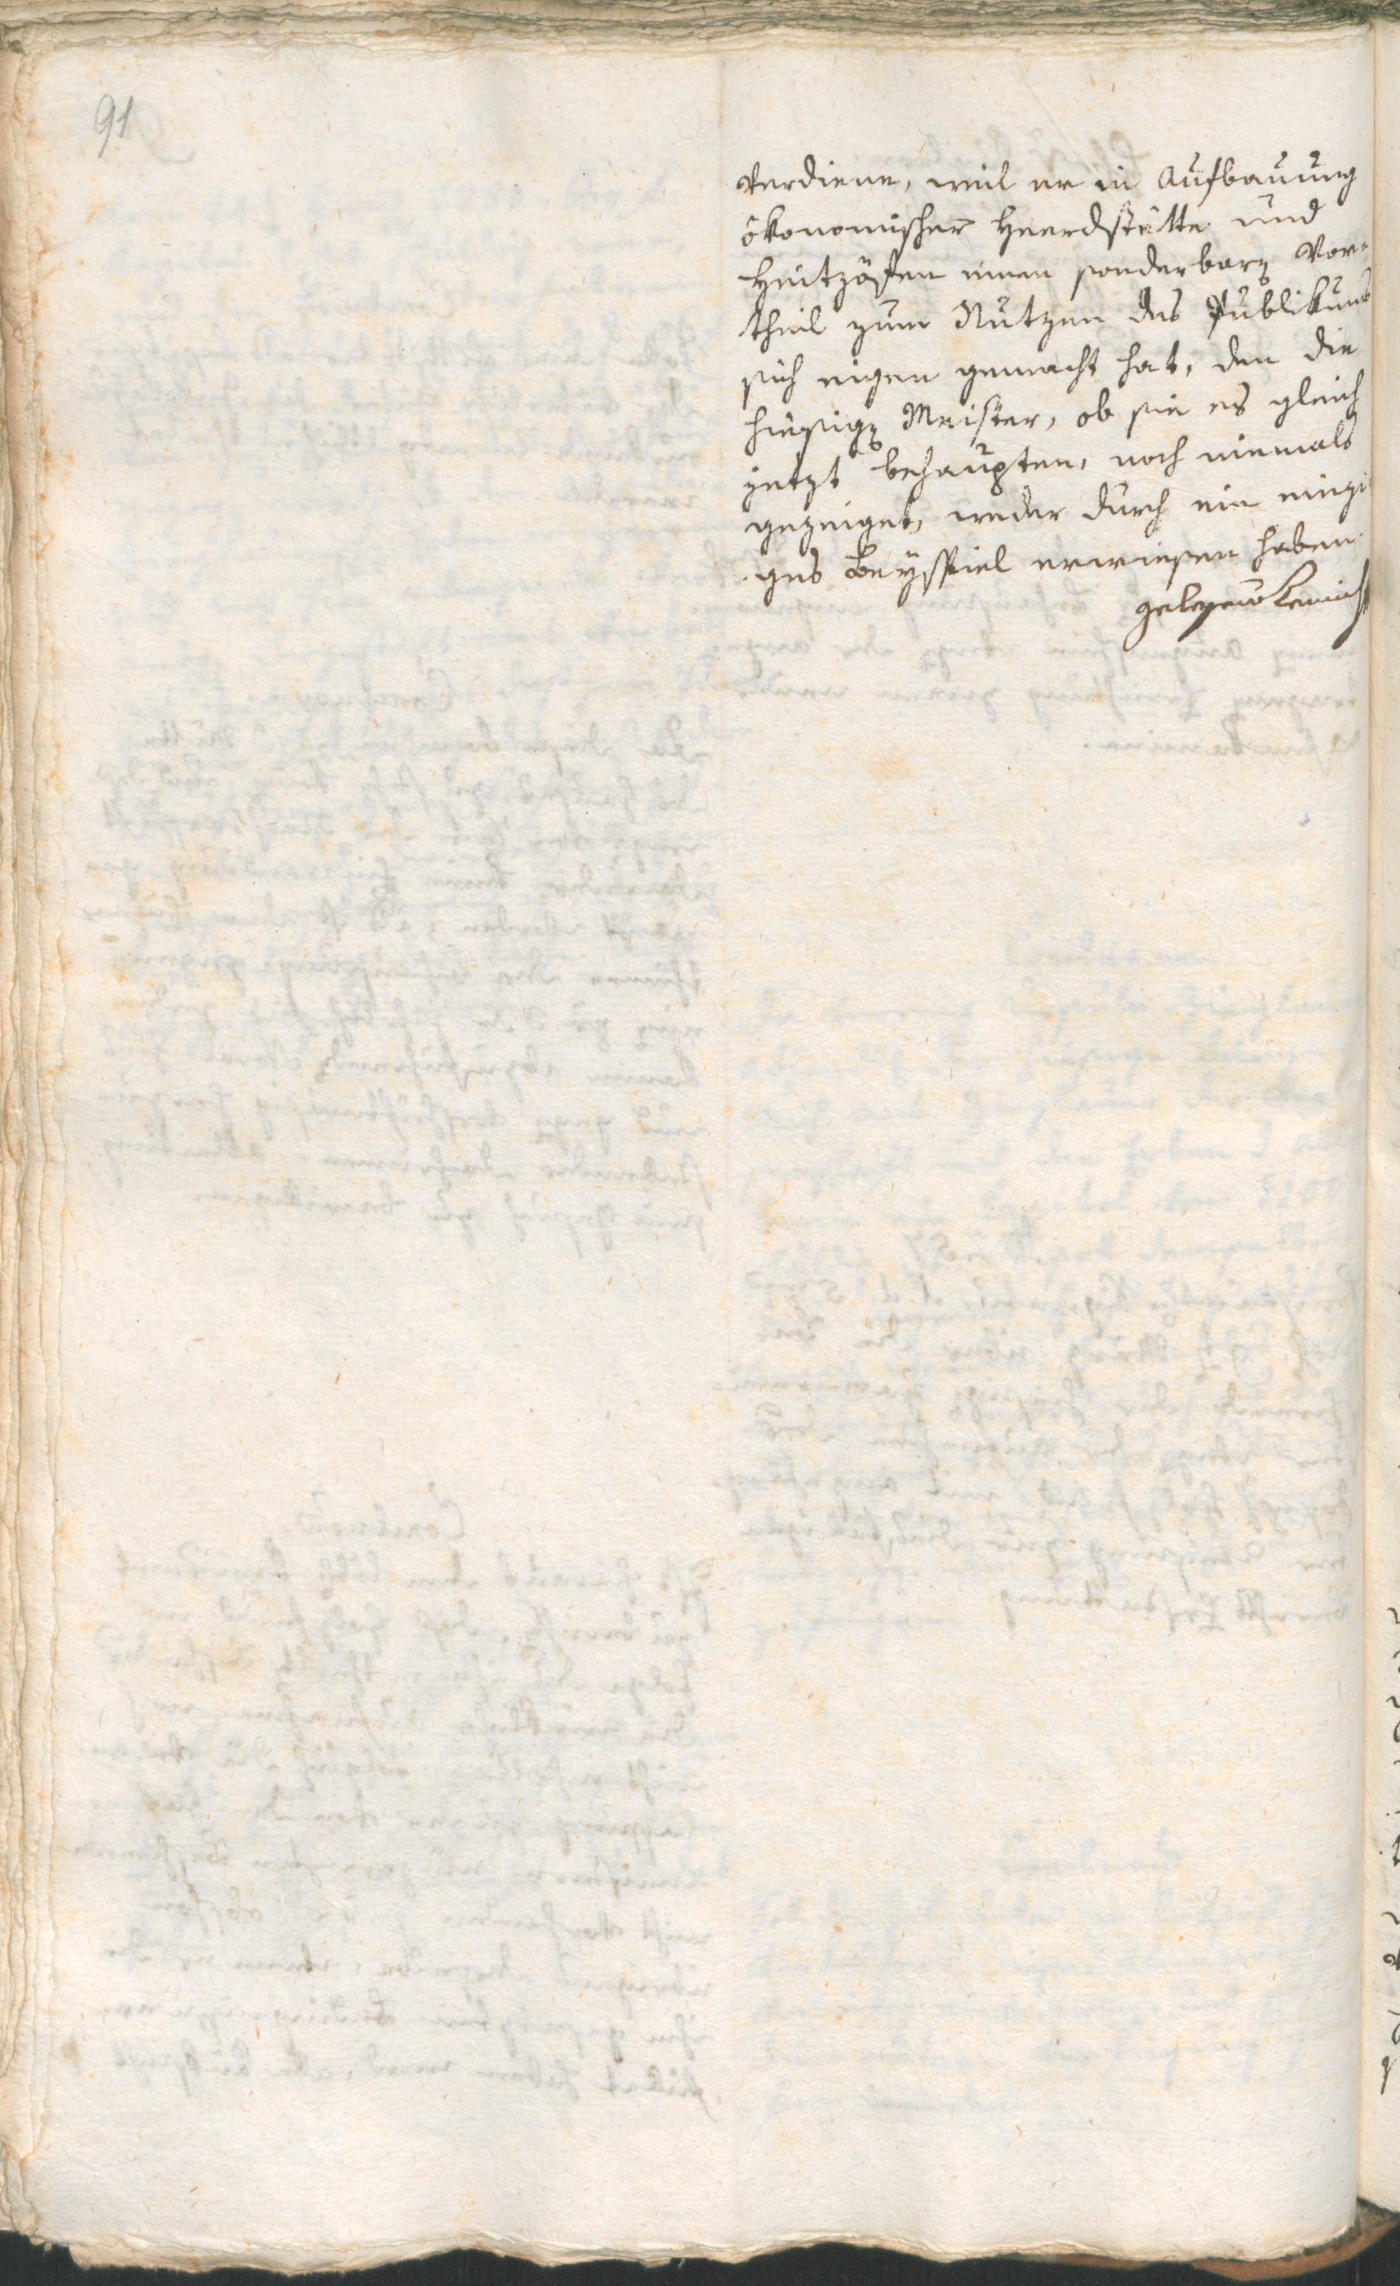 91
verdiene, weil er in Aufbauung
ökonomischer Heerdstätte und
Heitzöfen einen sonderbarn Vor-
theil zum Nutzen des Publikums
sich eigen gemacht hat, den die
hiesign Meister, ob sie es gleich
jetzt behaupten, noch niemals
gezeiget, weder durch ein einzi
ges Beÿspiel erwiesen haben.